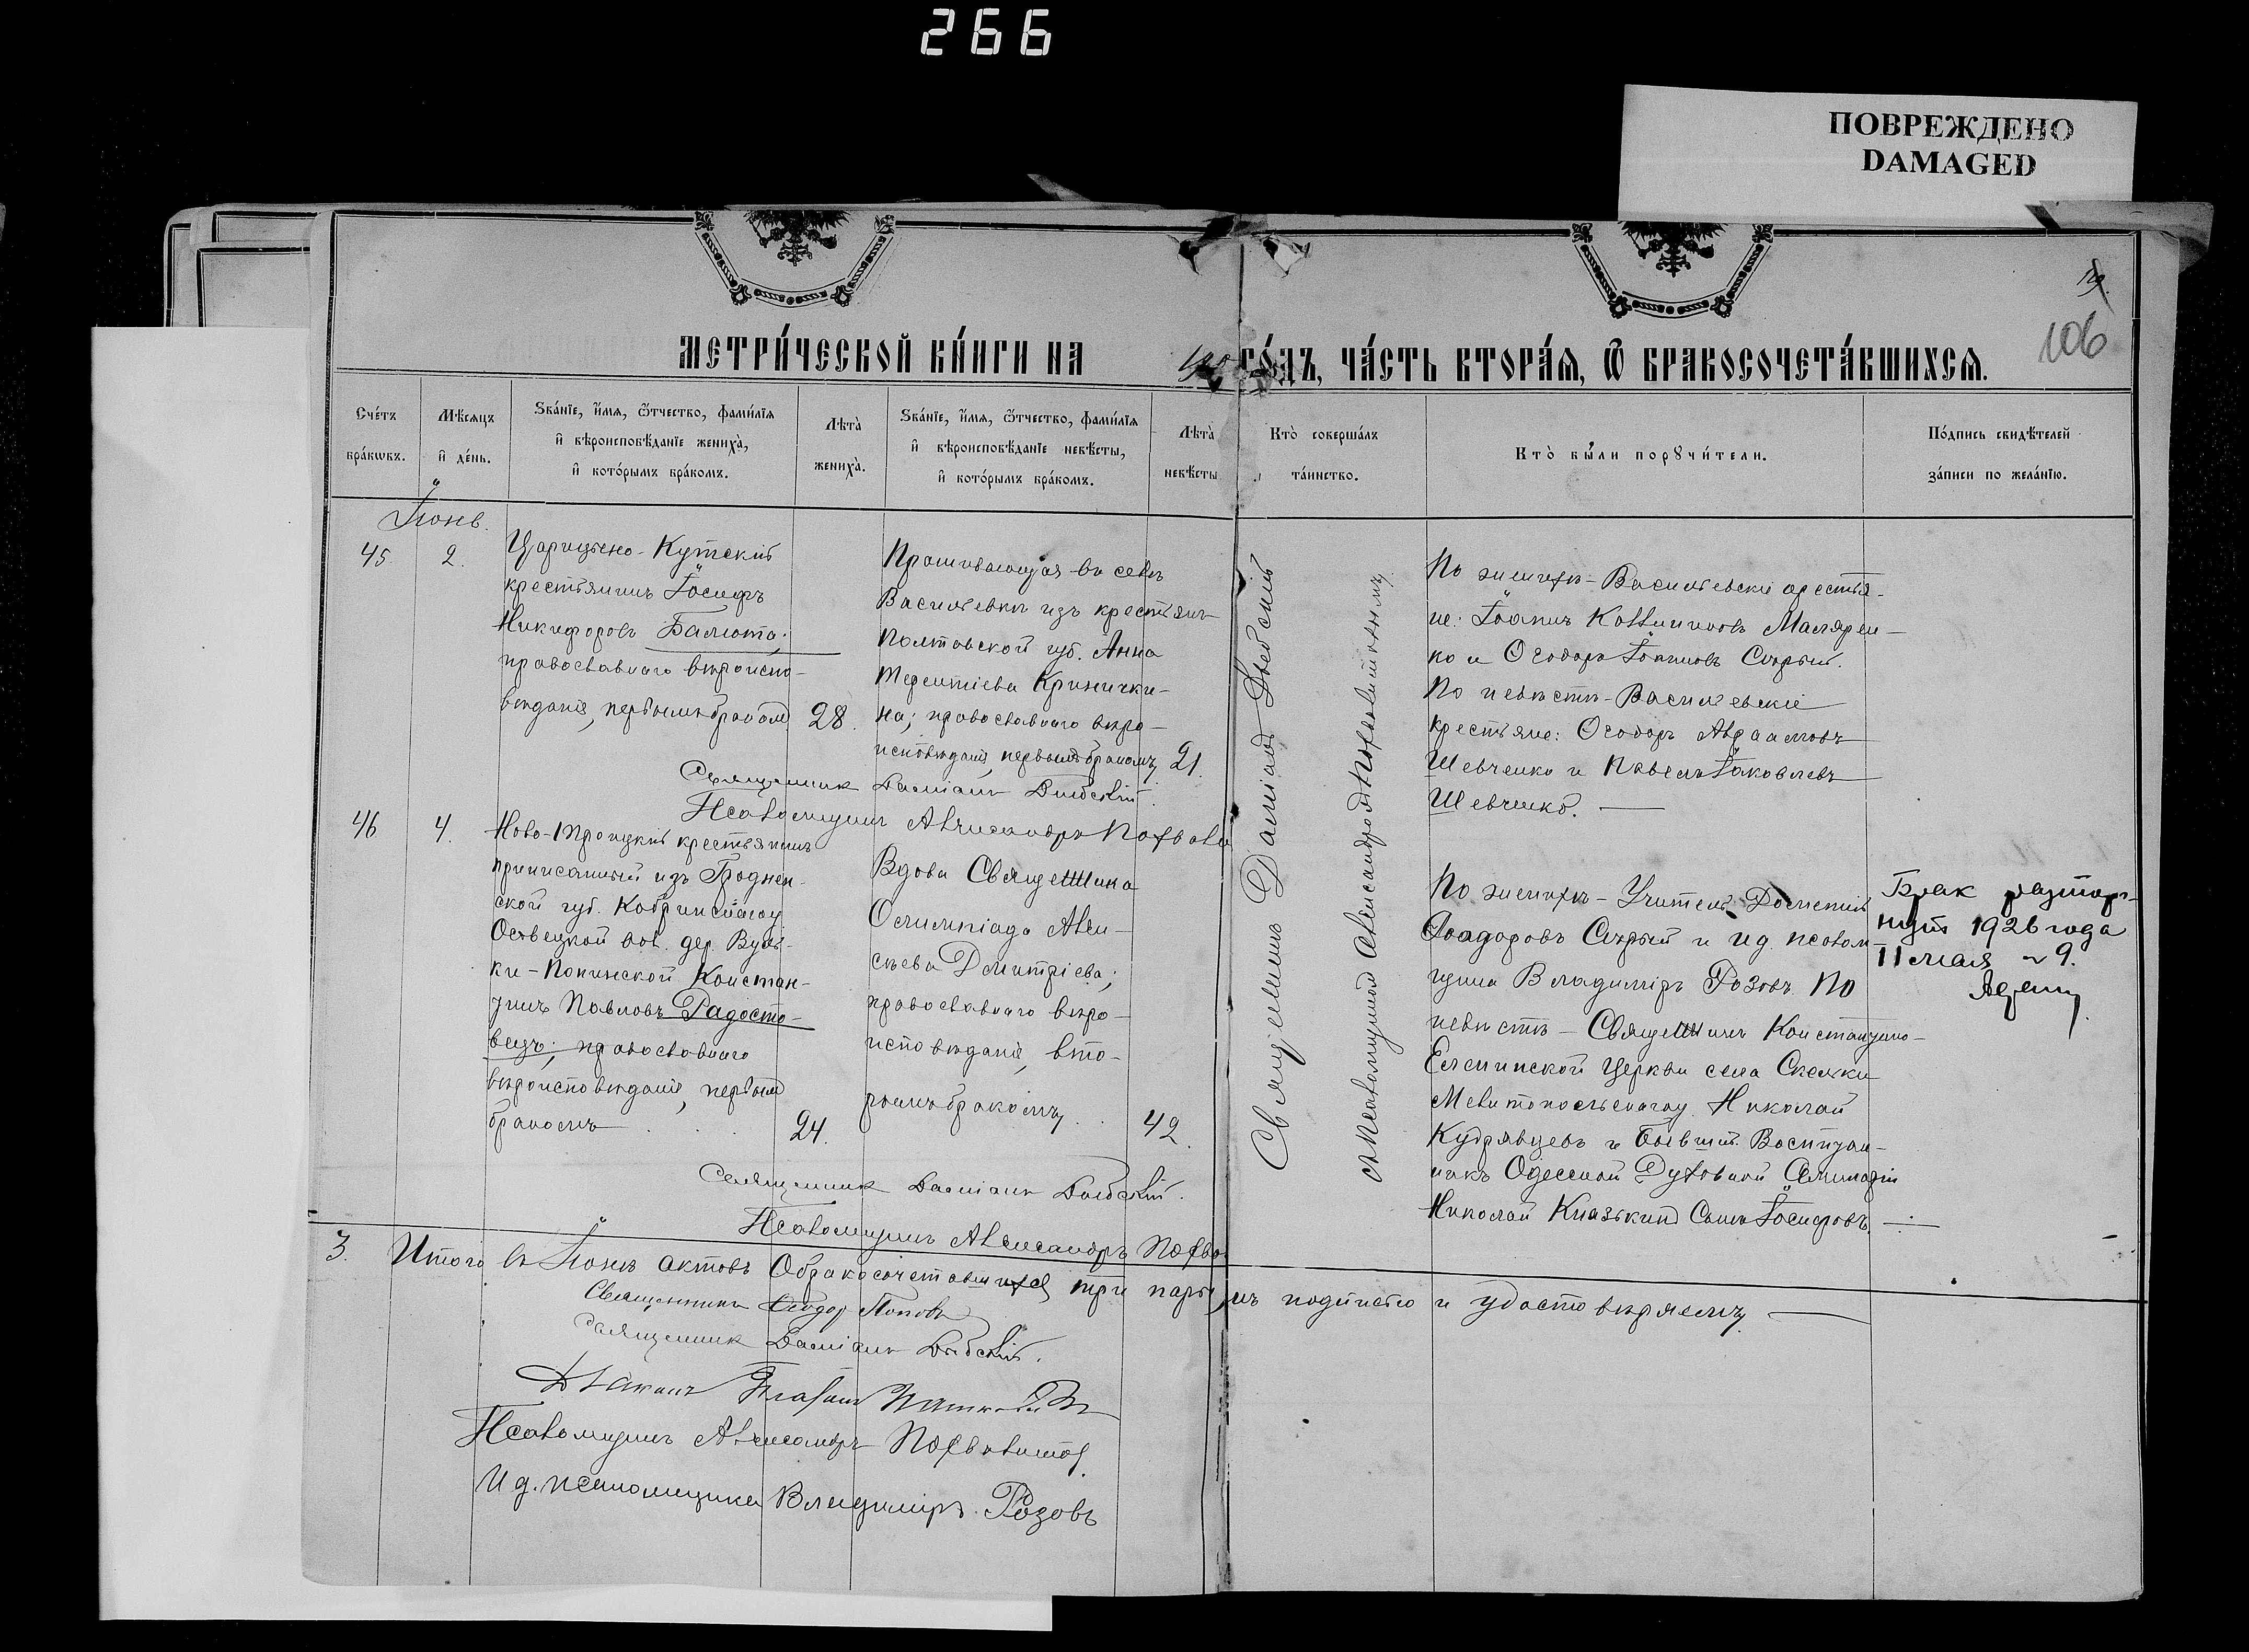 266
ПОВРЕЖДЕНО
DAMAGED
106
МЕТРИ́ЧЕСКОЙ КНИ́ГИ НА ГО́ДЪ, ЧА́СТЬ ВТОРА́Я, Ѿ БРАКОСОЧЕТА́ВШИХСЯ.
Сче́тъ
бра́кѡвъ.
Мѣсяцъ
и҆ де́нь.
Зва́нїе, и҆́мя, ѻ҆́тчество, фами́лїя
и҆ вѣроисповѣ́данїе жениха̀,
и҆ кото́рымъ бра́комъ.
Лѣта̀
жениха̀.
Зва́нїе, и҆́мя, ѻ҆́тчество, фами́лїя
и҆ вѣроисповѣ́данїе невѣ́сты,
и҆ кото́рымъ бра́комъ.
Лѣта̀
невѣ́сты
Кто̀ соверша́лъ
та́инство.
Кто̀ бы́ли порꙋчи́тели.
По́дпись свидѣ́телей
за́писи по жела́нїю.
Іюнь.
45
2.
Царицыно-Кутскій
крестьянинъ Іосифъ
Никифоровъ Балюта;
православнаго вѣроиспо-
вѣданія, первымъ бракомъ
28.
Проживающая въ селѣ
Васильевкѣ изъ крестьянъ
Полтавской губ. Анна
Терентіева Криничкі-
на; православнаго вѣро-
исповѣданія, первымъ бракомъ
21.
Священникъ Даміанъ Дыбскій.
Псаломщикъ Александръ
По женихѣ - Васильевскіе крестья-
не: Іоаннъ Маляренко
ко и Ѳеодоръ Іоанновъ Сѣрый.
По невѣстѣ - Васильевскіе
крестьяне: Ѳеодоръ Авраамовъ
Шевченко и Павелъ Іаковлевъ
Шевченко.
Священникъ Даміанъ Дыбскій
съ псаломщикомъ Александромъ
46
4.
Ново-Троицкій крестьянинъ
приписанный изъ Гроднен-
ской губ. Кобринскаго у.
вол. дер. Вуль-
ки-Попинской Констан-
тинъ Павловъ Радосто-
вецъ; православнаго
вѣроисповѣданія, первымъ
бракомъ
24.
Вдова Священника
Олимпіада Алек-
сѣева Дмитріева;
православнаго вѣро-
исповѣданія, вто-
рымъ бракомъ
42.
Священникъ Даміанъ Дыбскій.
Псаломщикъ Александръ
По женихѣ - Учитель
Ѳеодоровъ Сѣрый и и.д. псалом-
щика Владиміръ Розовъ. По
невѣстѣ - Священникъ Константино-
Еленинской Церкви села Скельки
Мелитопольскаго у. Николай
Кудрявцевъ и бывшій Воспитан-
никъ Одесской Духовной Семинаріи
Николай Іосифовъ.
Брак расторг-
нут 1926 года
11 мая № 9.
3. Итого въ Іюнѣ актовъ О бракосочетавшихся три пары, въ подписью и удостовѣряемъ
Священникъ Ѳеодоръ Поповъ
Священникъ Даміанъ Дыбскій.
Діаконъ
Псаломщикъ Александръ
И д. псаломщика Владиміръ Розовъ